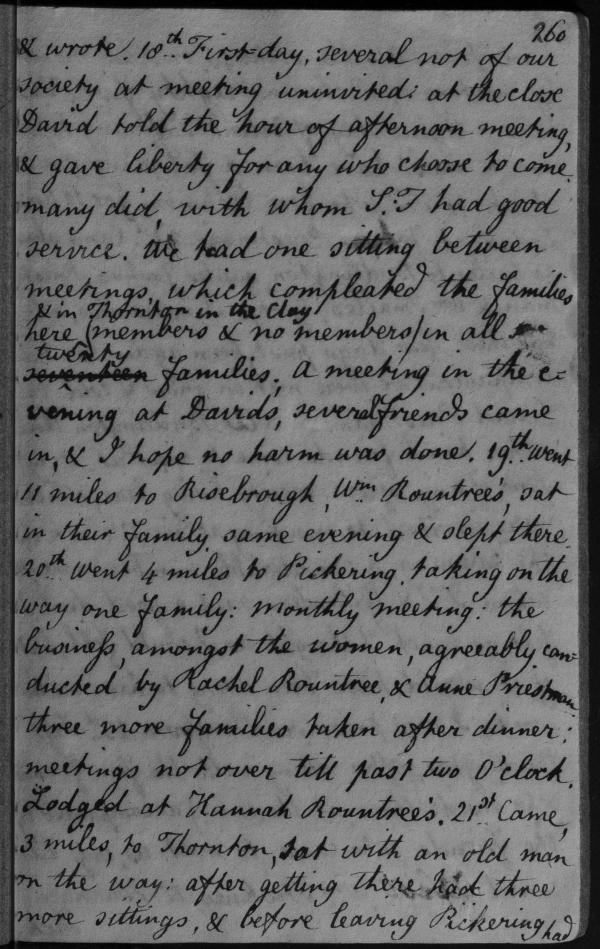 260
& wrote. 18th First-day, several not of our
society at meeting uninvited: at the close
David told the hour of afternoon meeting,
& gave liberty for any who choose to come.
many did, with whom S:T had good
service. We had one sitting between
meetings, which compleated the families
& in Thornton in the Clay
here (members & no members) in all
twenty
seventeen families; A meeting in the e-
vening at Davids, several friends came
in, & I hope no harm was done. 19th went
11 miles to Risebrough, Wm Rountree's, sat
in their family same evening & slept there.
20th went 4 miles to Pickering, taking on the
way one family: monthly meeting: the
business, amongst the women, agreeably con=
ducted by Rachel Rountree, & Anne Priestman
three more families taken after dinner:
meetings not over till past two O'clock.
Lodged at Hannah Rountree's. 21st Came,
3 miles, to Thornton, sat with an old man
on the way: after getting there had three
more sittings, & before leaving Pickering had